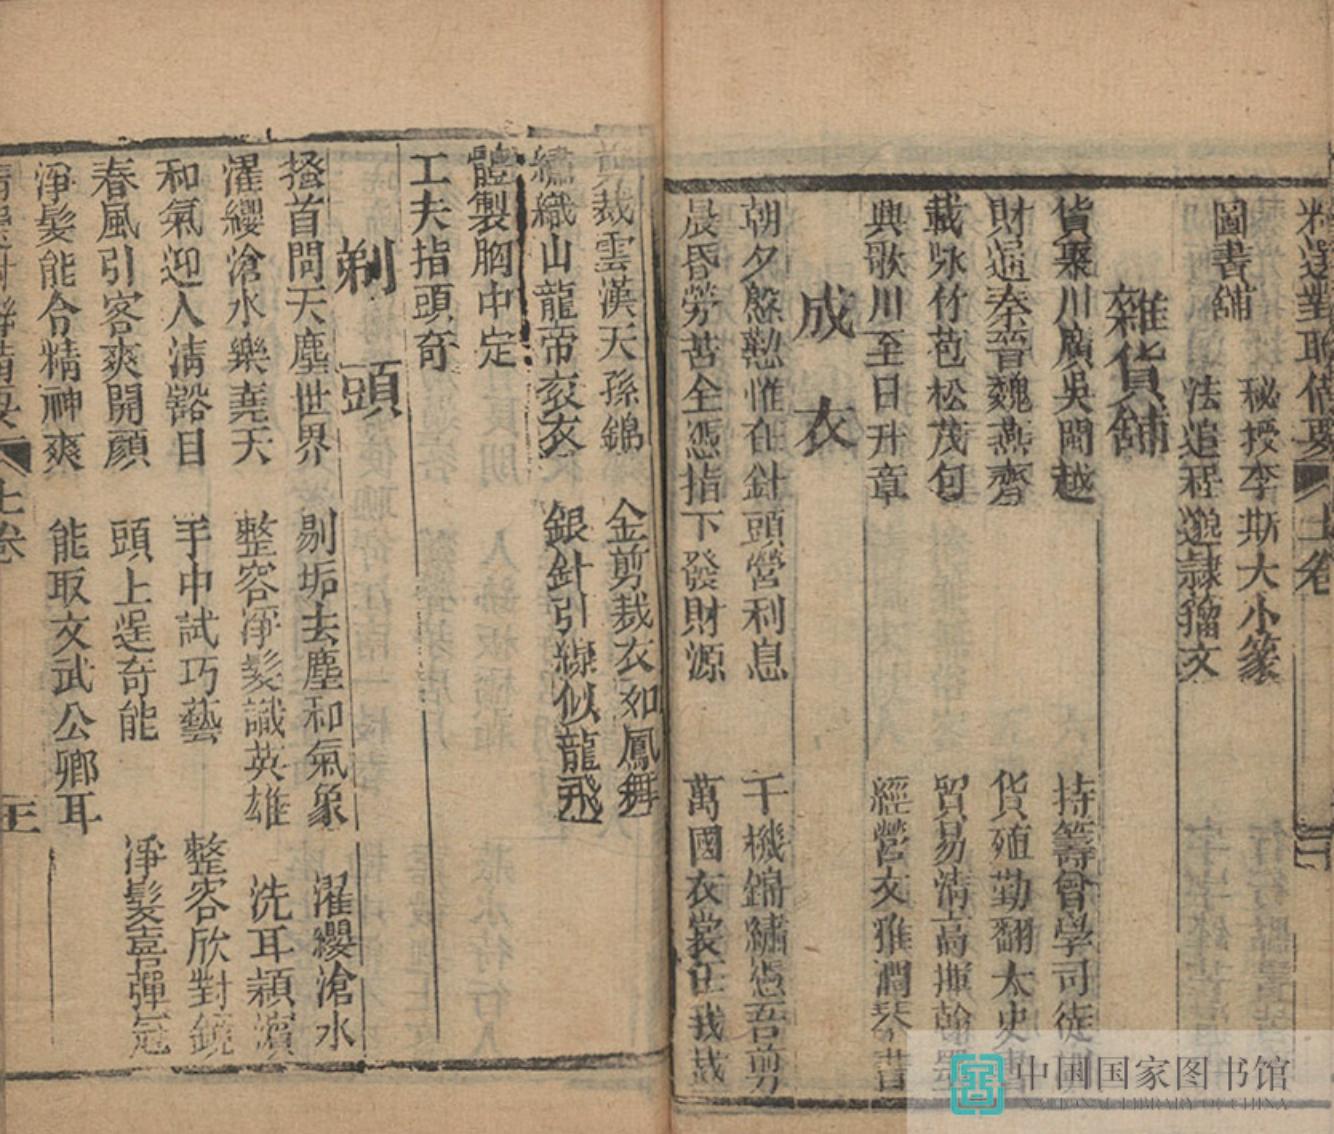 圖書舖
秘授李斯大小篆
法追程邈隸籀文
雜貨舖
貨聚川廣吳閩越
持籌曾學司徒
財通秦晉魏燕齊
貨殖勤翻太史書
載咏竹苞松茂句
貿易清高揮翰墨
典歌川至日升章
經營文雅潤琴書
成衣
朝夕慇懃惟在針頭營利息
千機錦繡憑吾剪
晨昏勞苦全憑指下發財源
萬國衣裳任我裁
剪裁雲漢天孫錦
金剪裁衣如鳳舞
繡織山龍帝衮衣
銀針引線似龍飛
體製胸中定
工夫指頭奇
剃頭
搔首問天塵世界
剔垢去塵和氣象
濯纓滄水
濯纓滄水樂堯天
整容淨髮識英雄
洗耳潁濱
和氣迎人淸豁目
手中試巧藝
整容欣對鏡
春風引客爽開顏
頭上逞奇能
淨髮喜彈冠
淨髮能令精神爽
能取文武公卿耳
上卷
中国国家图书馆
NATIONAL LIBRARY OF CHINA